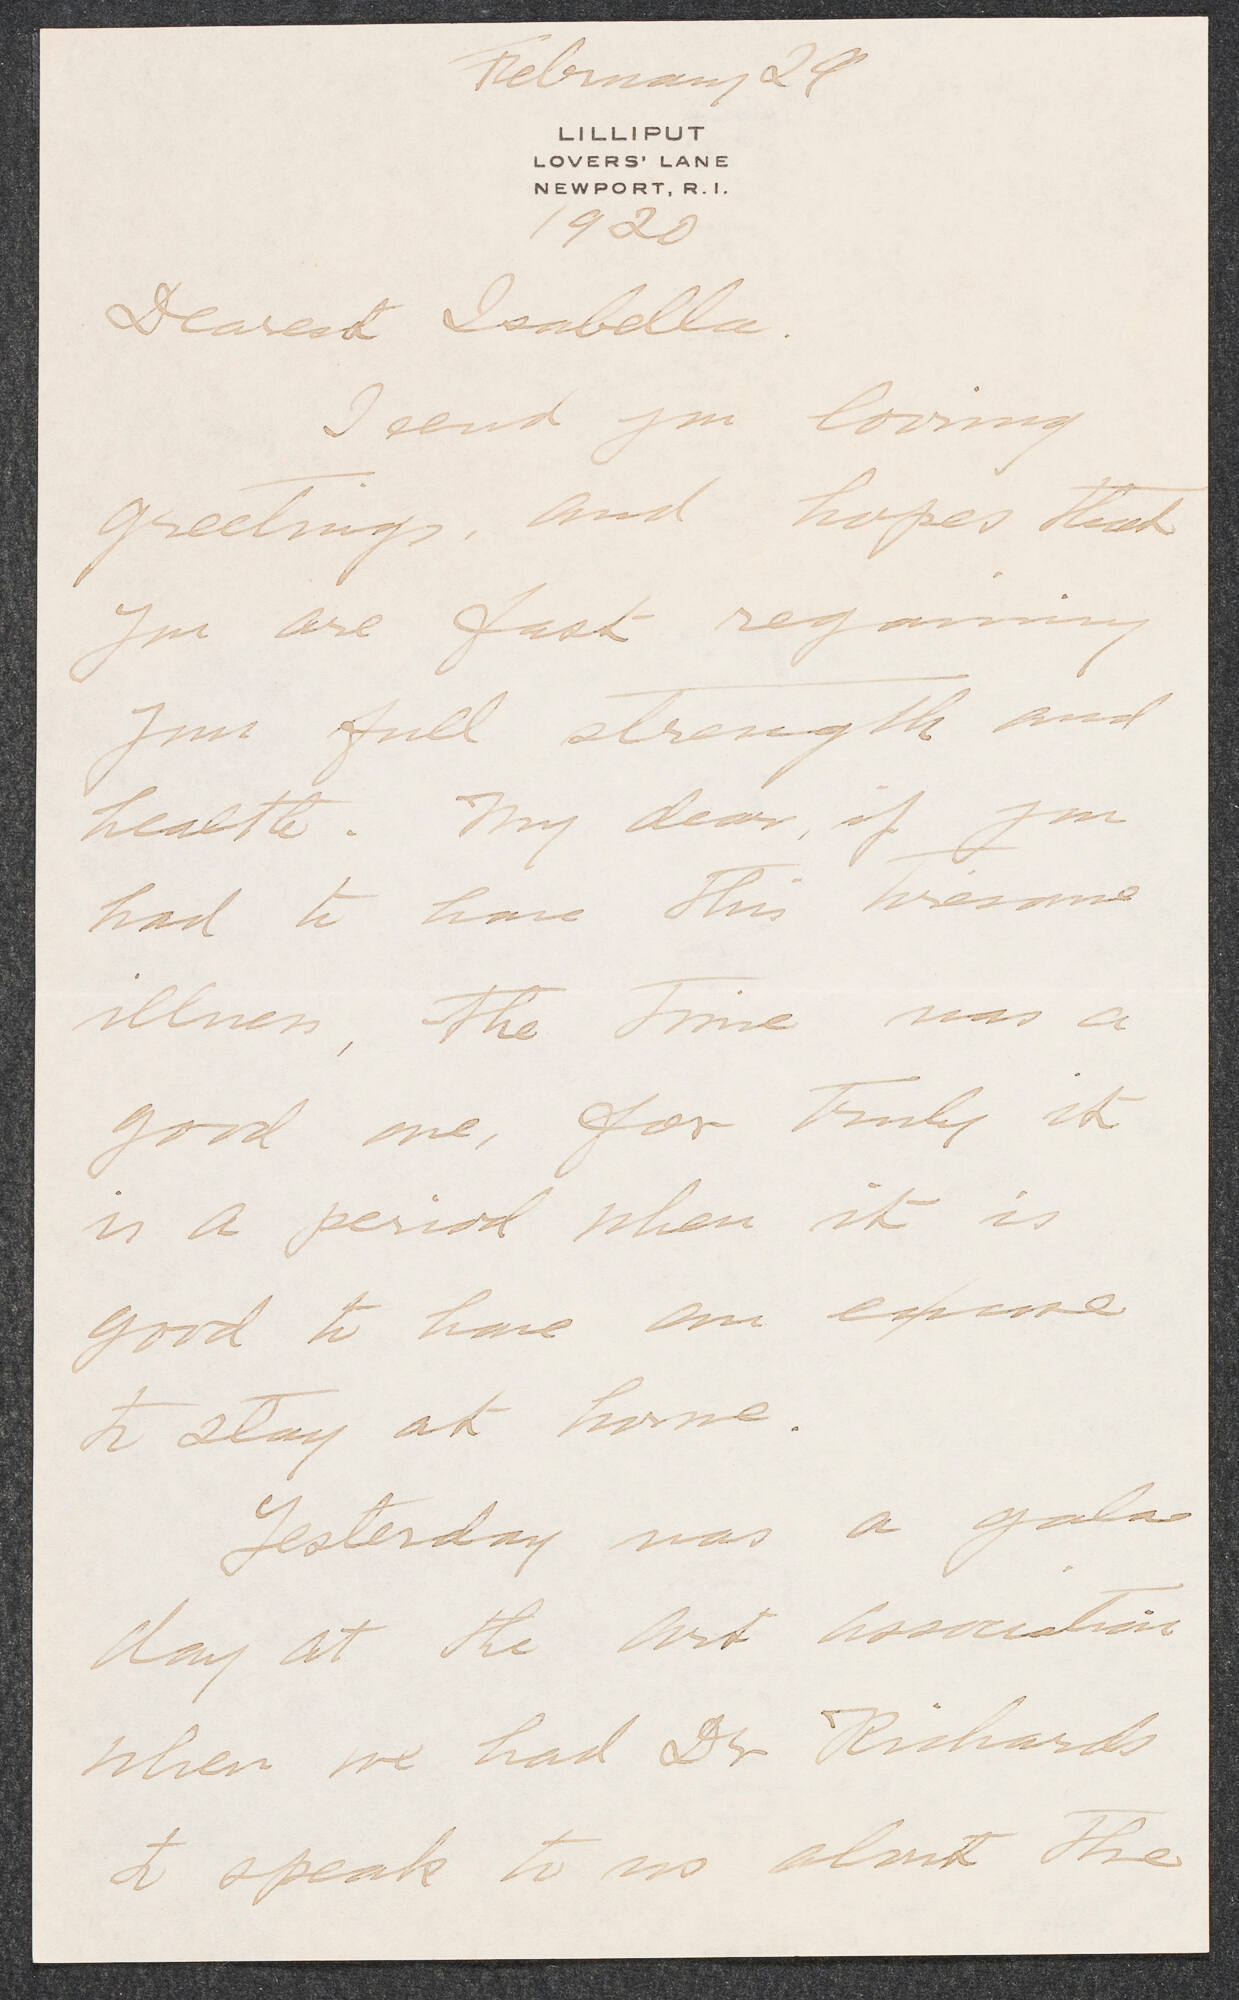 February 29
LILLIPUT
LOVERS' LANE
NEWPORT, R.I.
1920
Dearest Isabella.
I send you loving
greetings, and hopes that
you are fast regaining
your full strength and
health. My dear, if you
had to have this tiresome
illness, the time was a
good one, for truly it
is a period when it is
good to have an excuse
to stay at home.
Yesterday was a gala
day at the art association
when we had Dr Richards
to speak to us about the